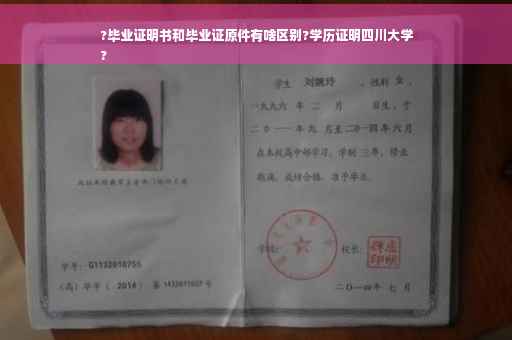 ?毕业证明书和毕业证原件有啥区别?学历证明四川大学
?
学生 刘婉玲 ，性别 女 ，
一九九六 年 二 月 日生，于
二〇一一年九 月至二〇一四年六月
在本校高中部学习，学制 三年，修业
期满，成绩合格，准予毕业。
学号： G1132010755
学校： 校长：
(高) 毕字 ( 2014 ) 第 1432011007 号
二〇一四年 七 月